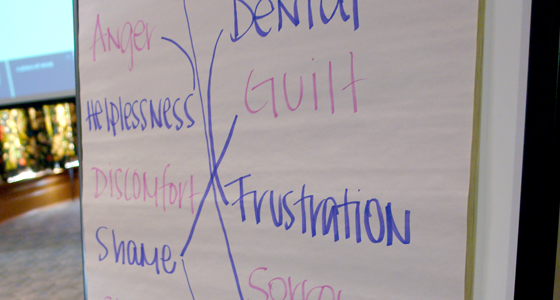 Anger
Denial
Guilt
Helplessness
Discomfort
Frustration
Shame
Sorrow